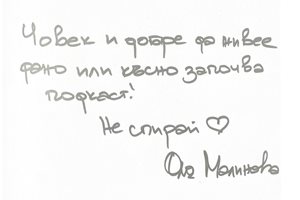 Човек и добре да живее
рано или късно започва
подкаст!
Не спирай ♡
Оля Малинова